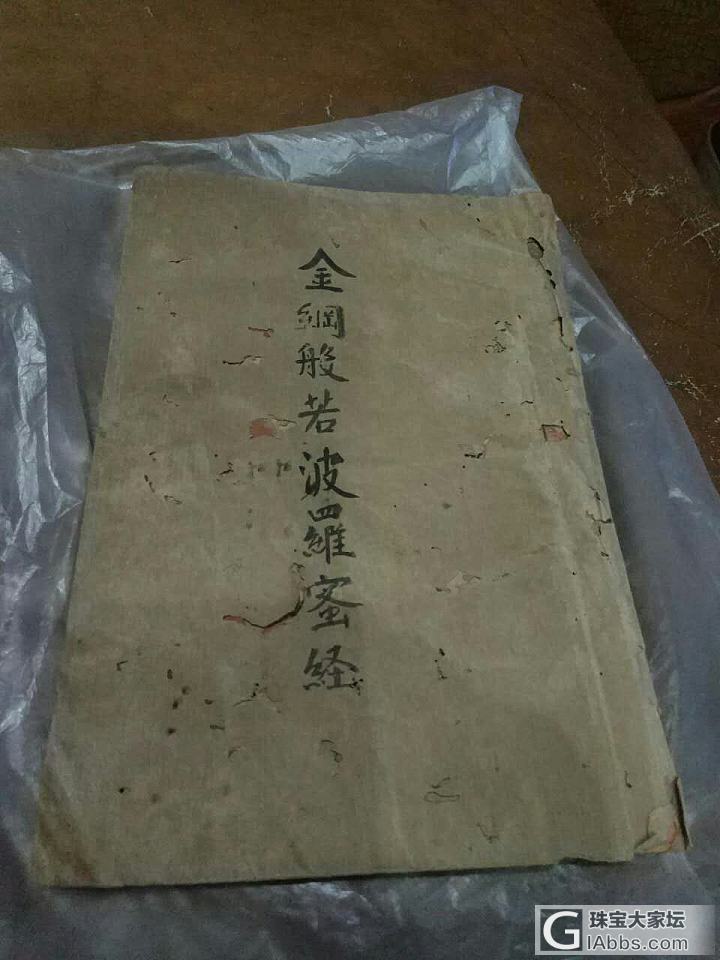 金綱般若波羅蜜経
珠宝大家坛
GIAbbs.com